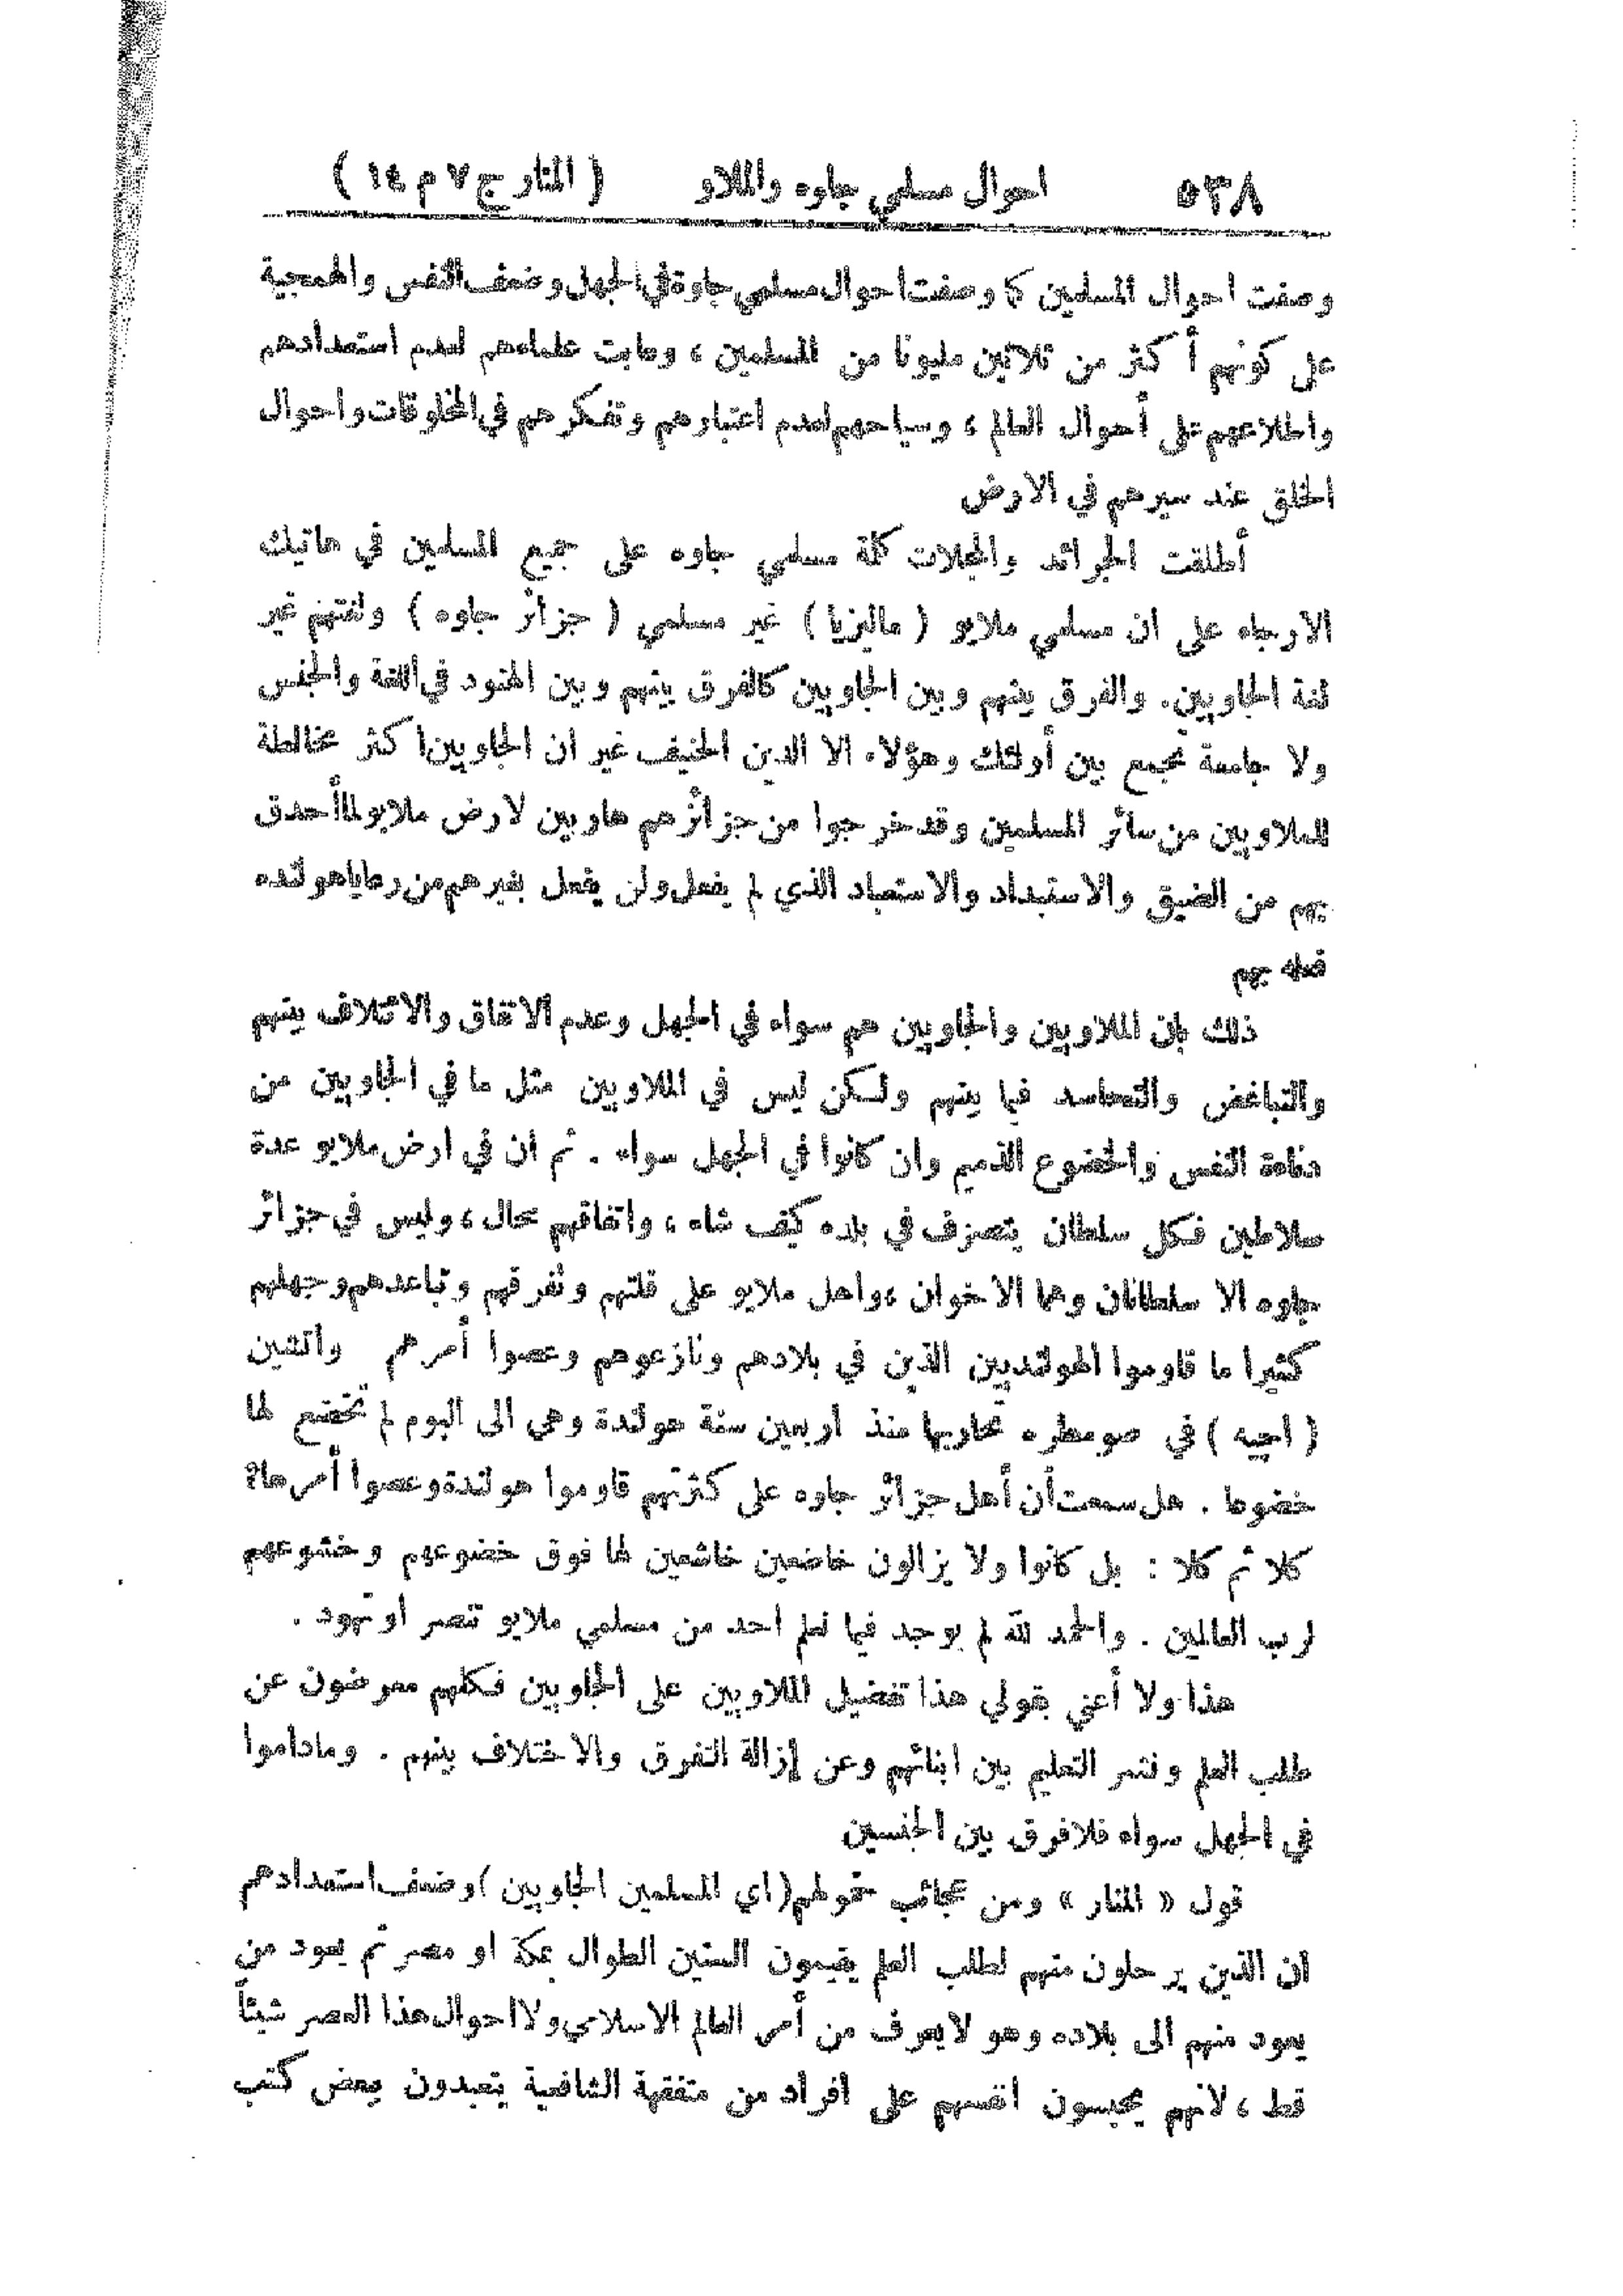 ٥٣٨ احوال مسلمي جاوه والملاو ( المنار ج ٧ م ١٤ )
وصفت احوال المسلمين كا وصفت احوال مسلمي جاوة في الجهل وضعف النفس والهمجية
على كونهم أكثر من ثلاثين مليونا من المسلمين ، وعابت علماءهم لعدم استعدادهم
واطلاعهم على أحوال العالم ، وسياحهم لعدم اعتبارهم وتفكرهم في المخلوقات واحوال
الخلق عند سيرهم في الارض
أطلقت الجرائد والمجلات كلمة مسلمي جاوه على جميع المسلمين في هاتيك
الارجاء على ان مسلمي ملايو ( ماليزيا ) غير مسلمي ( جزائر جاوه ) ولغتهم غير
لغة الجاويين. والفرق بينهم وبين الجاويين كالفرق بينهم وبين الهنود في اللغة والجنس
ولا جامعة تجمع بين أولئك وهؤلاء الا الدين الحنيف غير ان الجاويين اكثر مخالطة
للملاويين من سائر المسلمين وقد خرجوا من جزائرهم هاربين لارض ملايو لما أحدق
بهم من الضيق والاستبداد والاستعباد الذي لم يفعل ولن يفعل بغيرهم من رعايا هولنده
فعله بهم
ذلك بان الملاويين والجاويين هم سواء في الجهل وعدم الاتفاق والائتلاف بينهم
والتباغض والتحاسد فيما بينهم ولكن ليس في الملاويين مثل ما في الجاويين من
دناءة النفس والخضوع الذميم وان كانوا في الجهل سواء . ثم ان في ارض ملايو عدة
سلاطين فكل سلطان يتصرف في بلده كيف شاء ، واتفاقهم محال ، وليس في جزائر
جاوه الا سلطانان وهما الاخوان ، واهل ملايو على قلتهم وتفرقهم وتباعدهم وجهلهم
كثيرا ما قاوموا الهولنديين الذين في بلادهم ونازعوهم وعصوا أمرهم وآتشين
( اچيه ) في صومطره تحاربها منذ اربعين سنة هولندة وهي الى اليوم لم تخضع لها
خضوعا . هل سمعت أن أهل جزائر جاوه على كثرتهم قاوموا هولندة وعصوا أمرها؟
كلا ثم كلا : بل كانوا ولا يزالون خاضعين خاشعين لها فوق خضوعهم وخشوعهم
لرب العالمين . والحمد لله لم يوجد فيما نعلم احد من مسلمي ملايو تنصر او تهود .
هذا ولا أعني بقولي هذا تفضيل الملاويين على الجاويين فكلهم معرضون عن
طلب العلم ونشر التعليم بين ابنائهم وعن إزالة التفرق والاختلاف بينهم . وماداموا
في الجهل سواء فلا فرق بين الجنسين
قول « المنار » ومن عجائب خمولهم (اي المسلمين الجاويين ) وضعف استعدادهم
ان الذين يرحلون منهم لطلب العلم يقيمون السنين الطوال بمكة او مصر ثم يعود من
يعود منهم الى بلاده وهو لا يعرف من أمر العالم الاسلامي ولا احوال هذا العصر شيئاً
قط ، لانهم يحبسون انفسهم على افراد من متفقهة الشافعية يتعبدون ببعض كتب